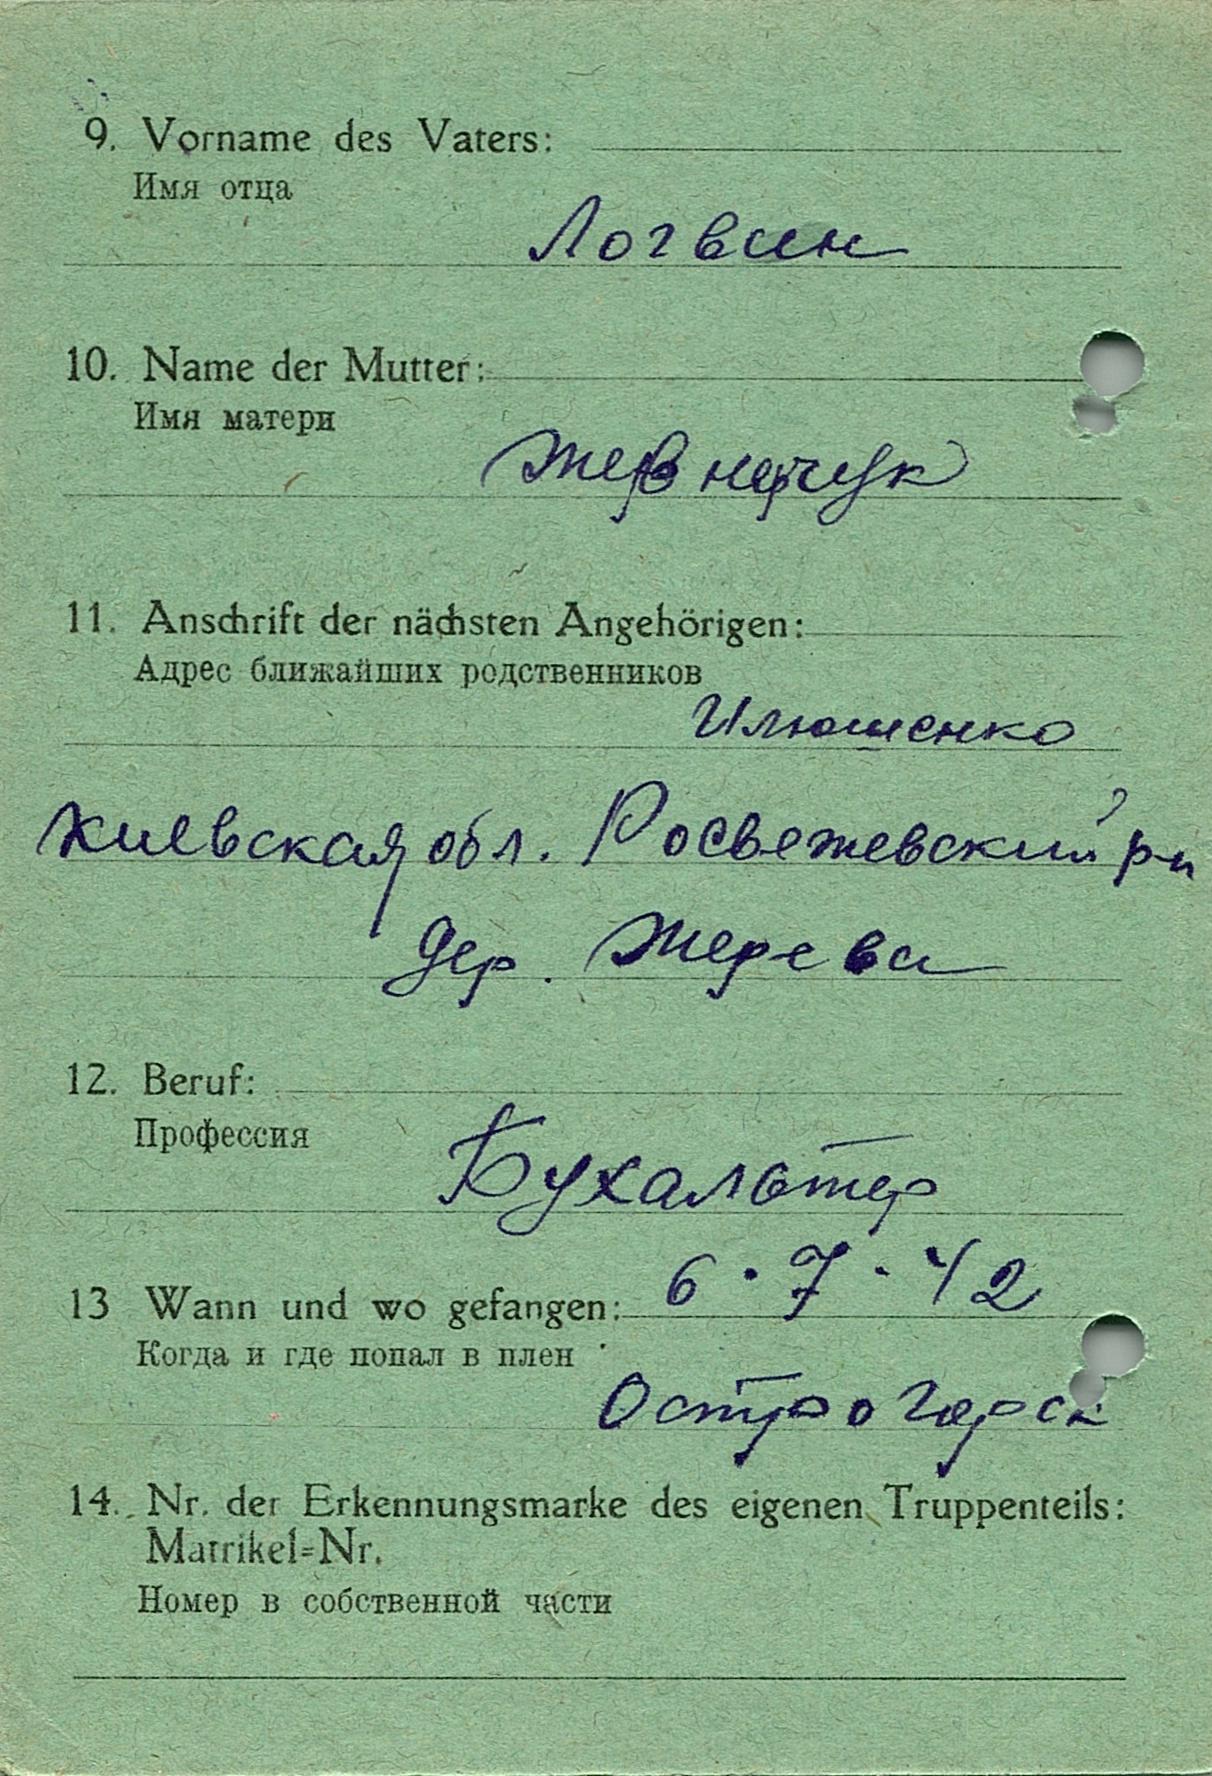 9. Vorname des Vaters:
Имя отца
Логвин
10. Name der Mutter:
Имя матери
11. Anschrift der nächsten Angehörigen:
Адрес ближайших родственников
Илюшенко
Киевская обл. Росвежевский р-н
дер. Жерева
12. Beruf:
Профессия
Бухальтер
13 Wann und wo gefangen: 6.7.42
Когда и где попал в плен
Острогорск
14. Nr. der Erkennungsmarke des eigenen Truppenteils:
Matrikel=Nr.
Номер в собственной части